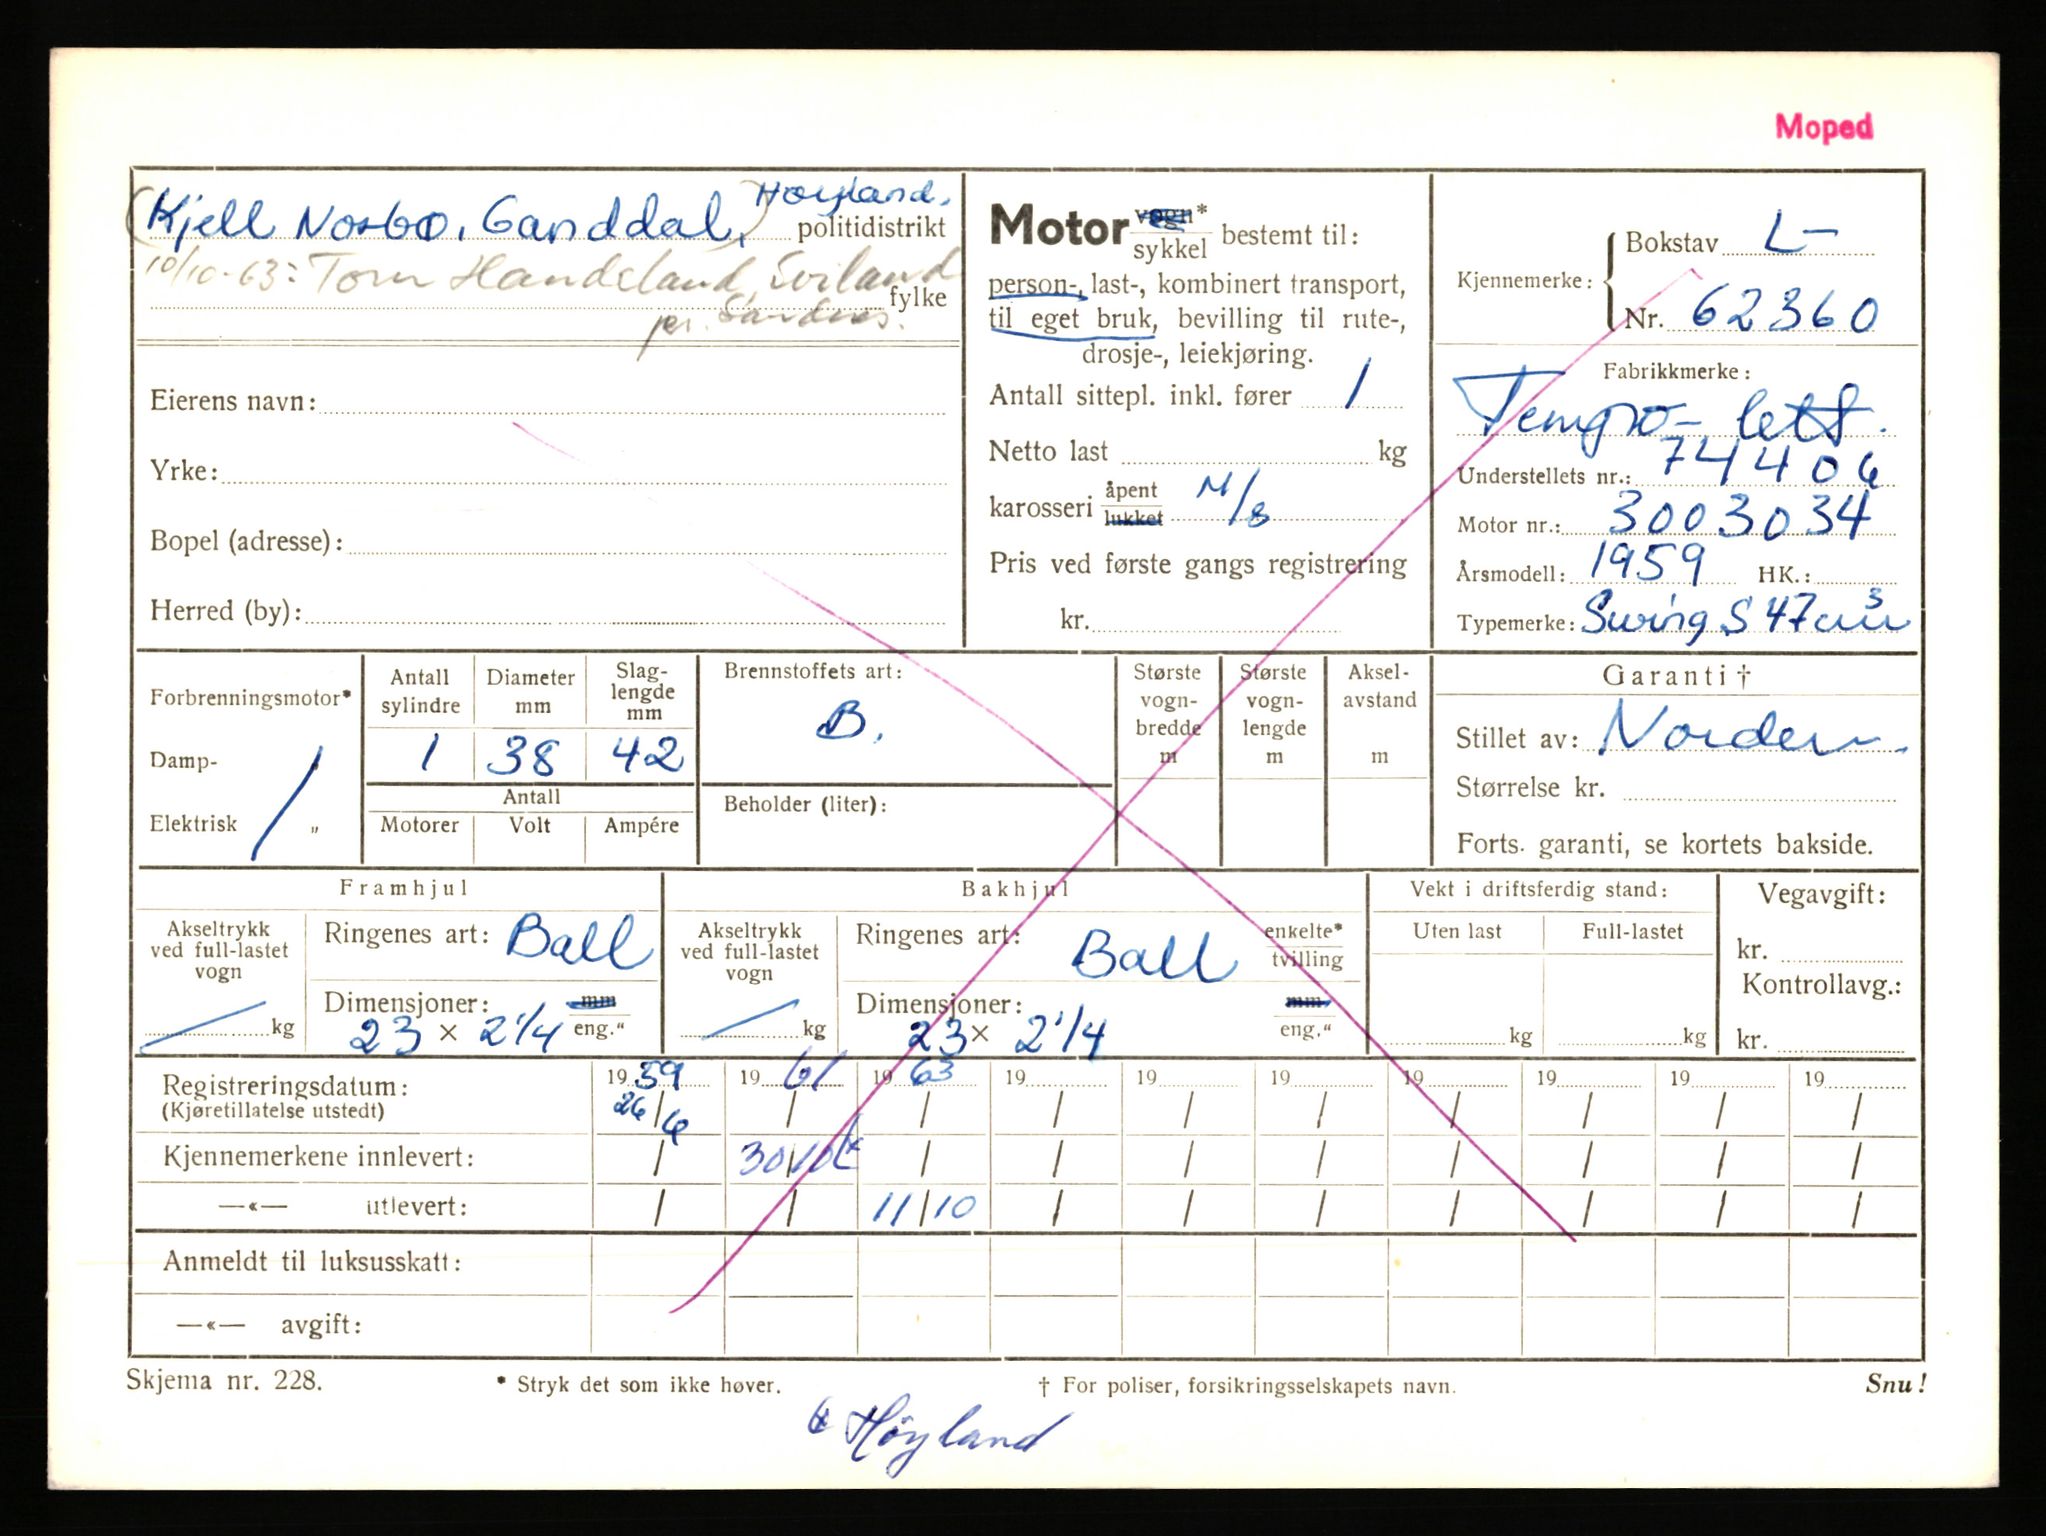 Moped
(Kjell Nosbø, Ganddal,) Høyland.
politidistrikt
10/10-63: Tom Handeland, Sviland
fylke
pr. Sandnes.
Eierens navn:
Yrke:
Bopel (adresse):
Herred (by):
Motor vogn* sykkel bestemt til:
person-, last-, kombinert transport,
til eget bruk, bevilling til rute-,
drosje-, leiekjøring.
Antall sittepl. inkl. fører 1
Netto last kg
karosseri åpent lukket M/S
Pris ved første gangs registrering
kr.
Kjennemerke: Bokstav L-
Nr. 62360
Fabrikkmerke:
Tempo-lett.
Understellets nr.: 744406
Motor nr.: 3003034
Årsmodell: 1959 HK.:
Typemerke: Swing S 47 cm³
Forbrenningsmotor*
Damp-
Elektrisk „
Antall sylindre
1
Diameter mm
38
Slag-lengde mm
42
Antall
Motorer Volt Ampére
Brennstoffets art:
B.
Beholder (liter):
Største vogn-bredde m
Største vogn-lengde m
Aksel-avstand m
Garanti †
Stillet av: Norden
Størrelse kr.
Forts. garanti, se kortets bakside.
Framhjul
Akseltrykk ved full-lastet vogn
kg
Ringenes art: Ball
Dimensjoner: mm
23 × 2 1/4 eng."
Bakhjul
Akseltrykk ved full-lastet vogn
kg
Ringenes art: Ball enkelte* tvilling
Dimensjoner: mm
23 × 2 1/4 eng."
Vekt i driftsferdig stand:
Uten last Full-lastet
kg kg
Vegavgift:
kr.
Kontrollavg.:
kr.
Registreringsdatum: 1959 1961 1963 19 19 19 19 19 19 19
(Kjøretillatelse utstedt) 26/6 / / / / / / / / /
Kjennemerkene innlevert: / 30/10 / / / / / / / /
—«— utlevert: / / 11/10 / / / / / / /
Anmeldt til luksusskatt:
—«— avgift:
Skjema nr. 228.
* Stryk det som ikke høver.
† For poliser, forsikringsselskapets navn.
Snu!
Høyland